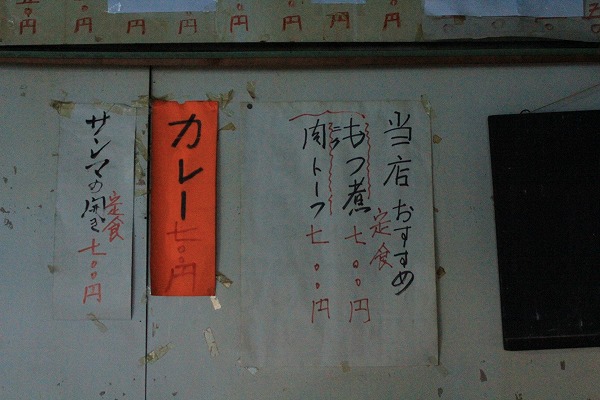 当店おすすめ
定食
もつ煮 七〇〇円
肉トーフ 七〇〇円
カレー 七〇円
サンマの開き
定食
七〇〇円
円
円
円
円
円
円
円